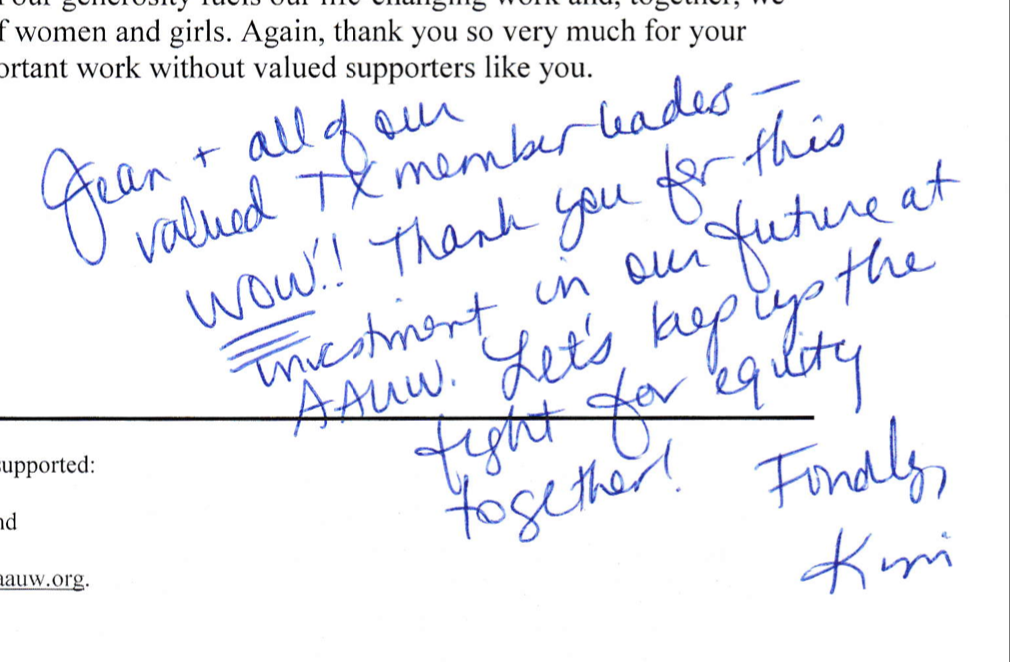 our generosity fuels our life-changing work and, together, we
f women and girls. Again, thank you so very much for your
ortant work without valued supporters like you.
Jean + all of our
valued TX member leaders –
WOW!! Thank you for this
investment in our future at
AAUW. Let's keep up the
fight for equity
together!
Fondly,
Kim
upported:
nd
aauw.org.